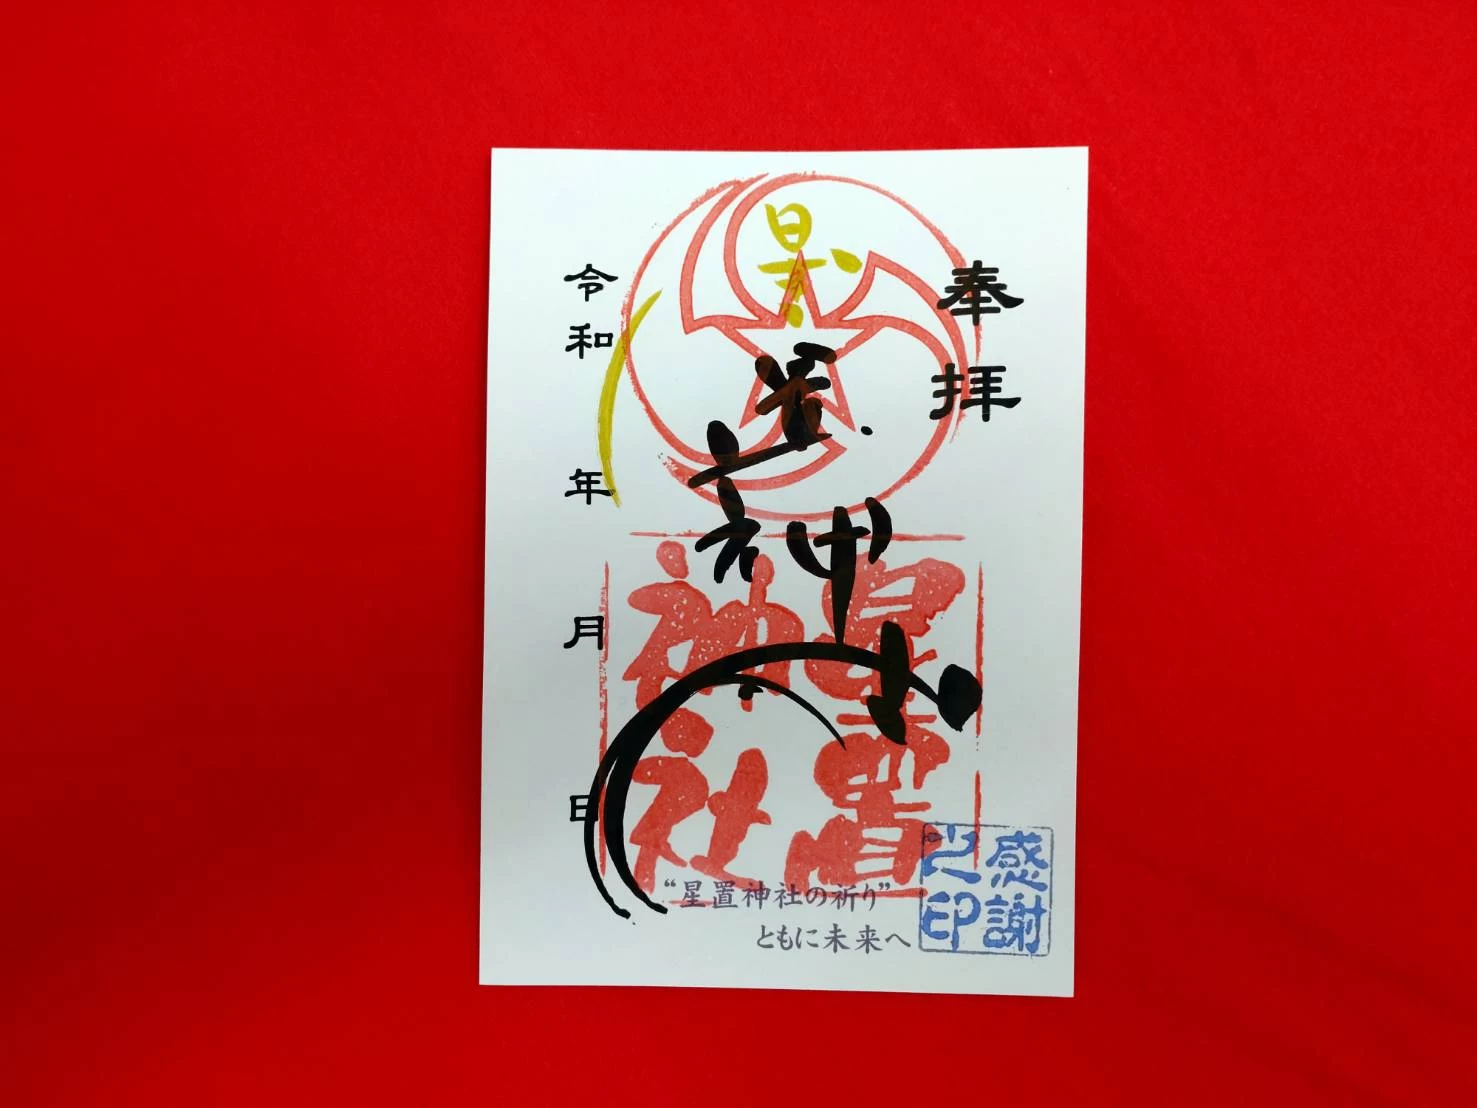 奉拝
星置神社
星置神社
令和 年 月 日
“星置神社の祈り”
ともに未来へ
感謝之印